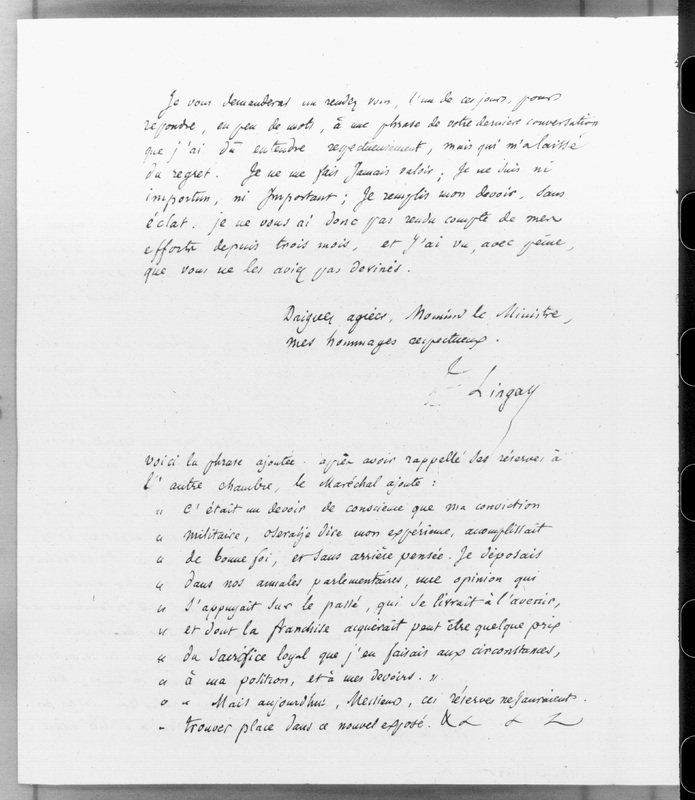 Je vous demanderai un rendez vous, l'un de ces jours, pour
repondre, en peu de mots, à une phrase de votre derniere conversation
que j'ai dû entendre respectueusement, mais qui m'a laissé
du regret. Je ne me fais Jamais valoir; Je ne suis ni
importun, ni Important; Je remplis mon devoir, sans
éclat. je ne vous ai donc pas rendu compte de mes
efforts depuis trois mois, et J'ai vu, avec peine,
que vous ne les aviez pas devinés.
Daignez agréer, Monsieur le Ministre,
mes hommages respectueux.
Lingay
Voici la phrase ajoutée. après avoir rappellé ses réserves à
l'autre chambre, le Maréchal ajoute:
" C'était un devoir de conscience que ma conviction
" militaire, oserai-je dire mon expérience, accomplissait
" de bonne foi, et sans arrière pensée. Je déposais
" dans nos annales parlementaires, une opinion qui
" S'appuyait sur le passé, qui se livrait à l'avenir,
" et dont la franchise acquérait peut être quelque prix
" du sacrifice loyal que j'en faisais aux circonstances,
" à ma position, et à mes devoirs. "
" " Mais aujourdhui, Messieurs, ces réserves ne sauraient
" trouver place dans ce nouvel exposé. &